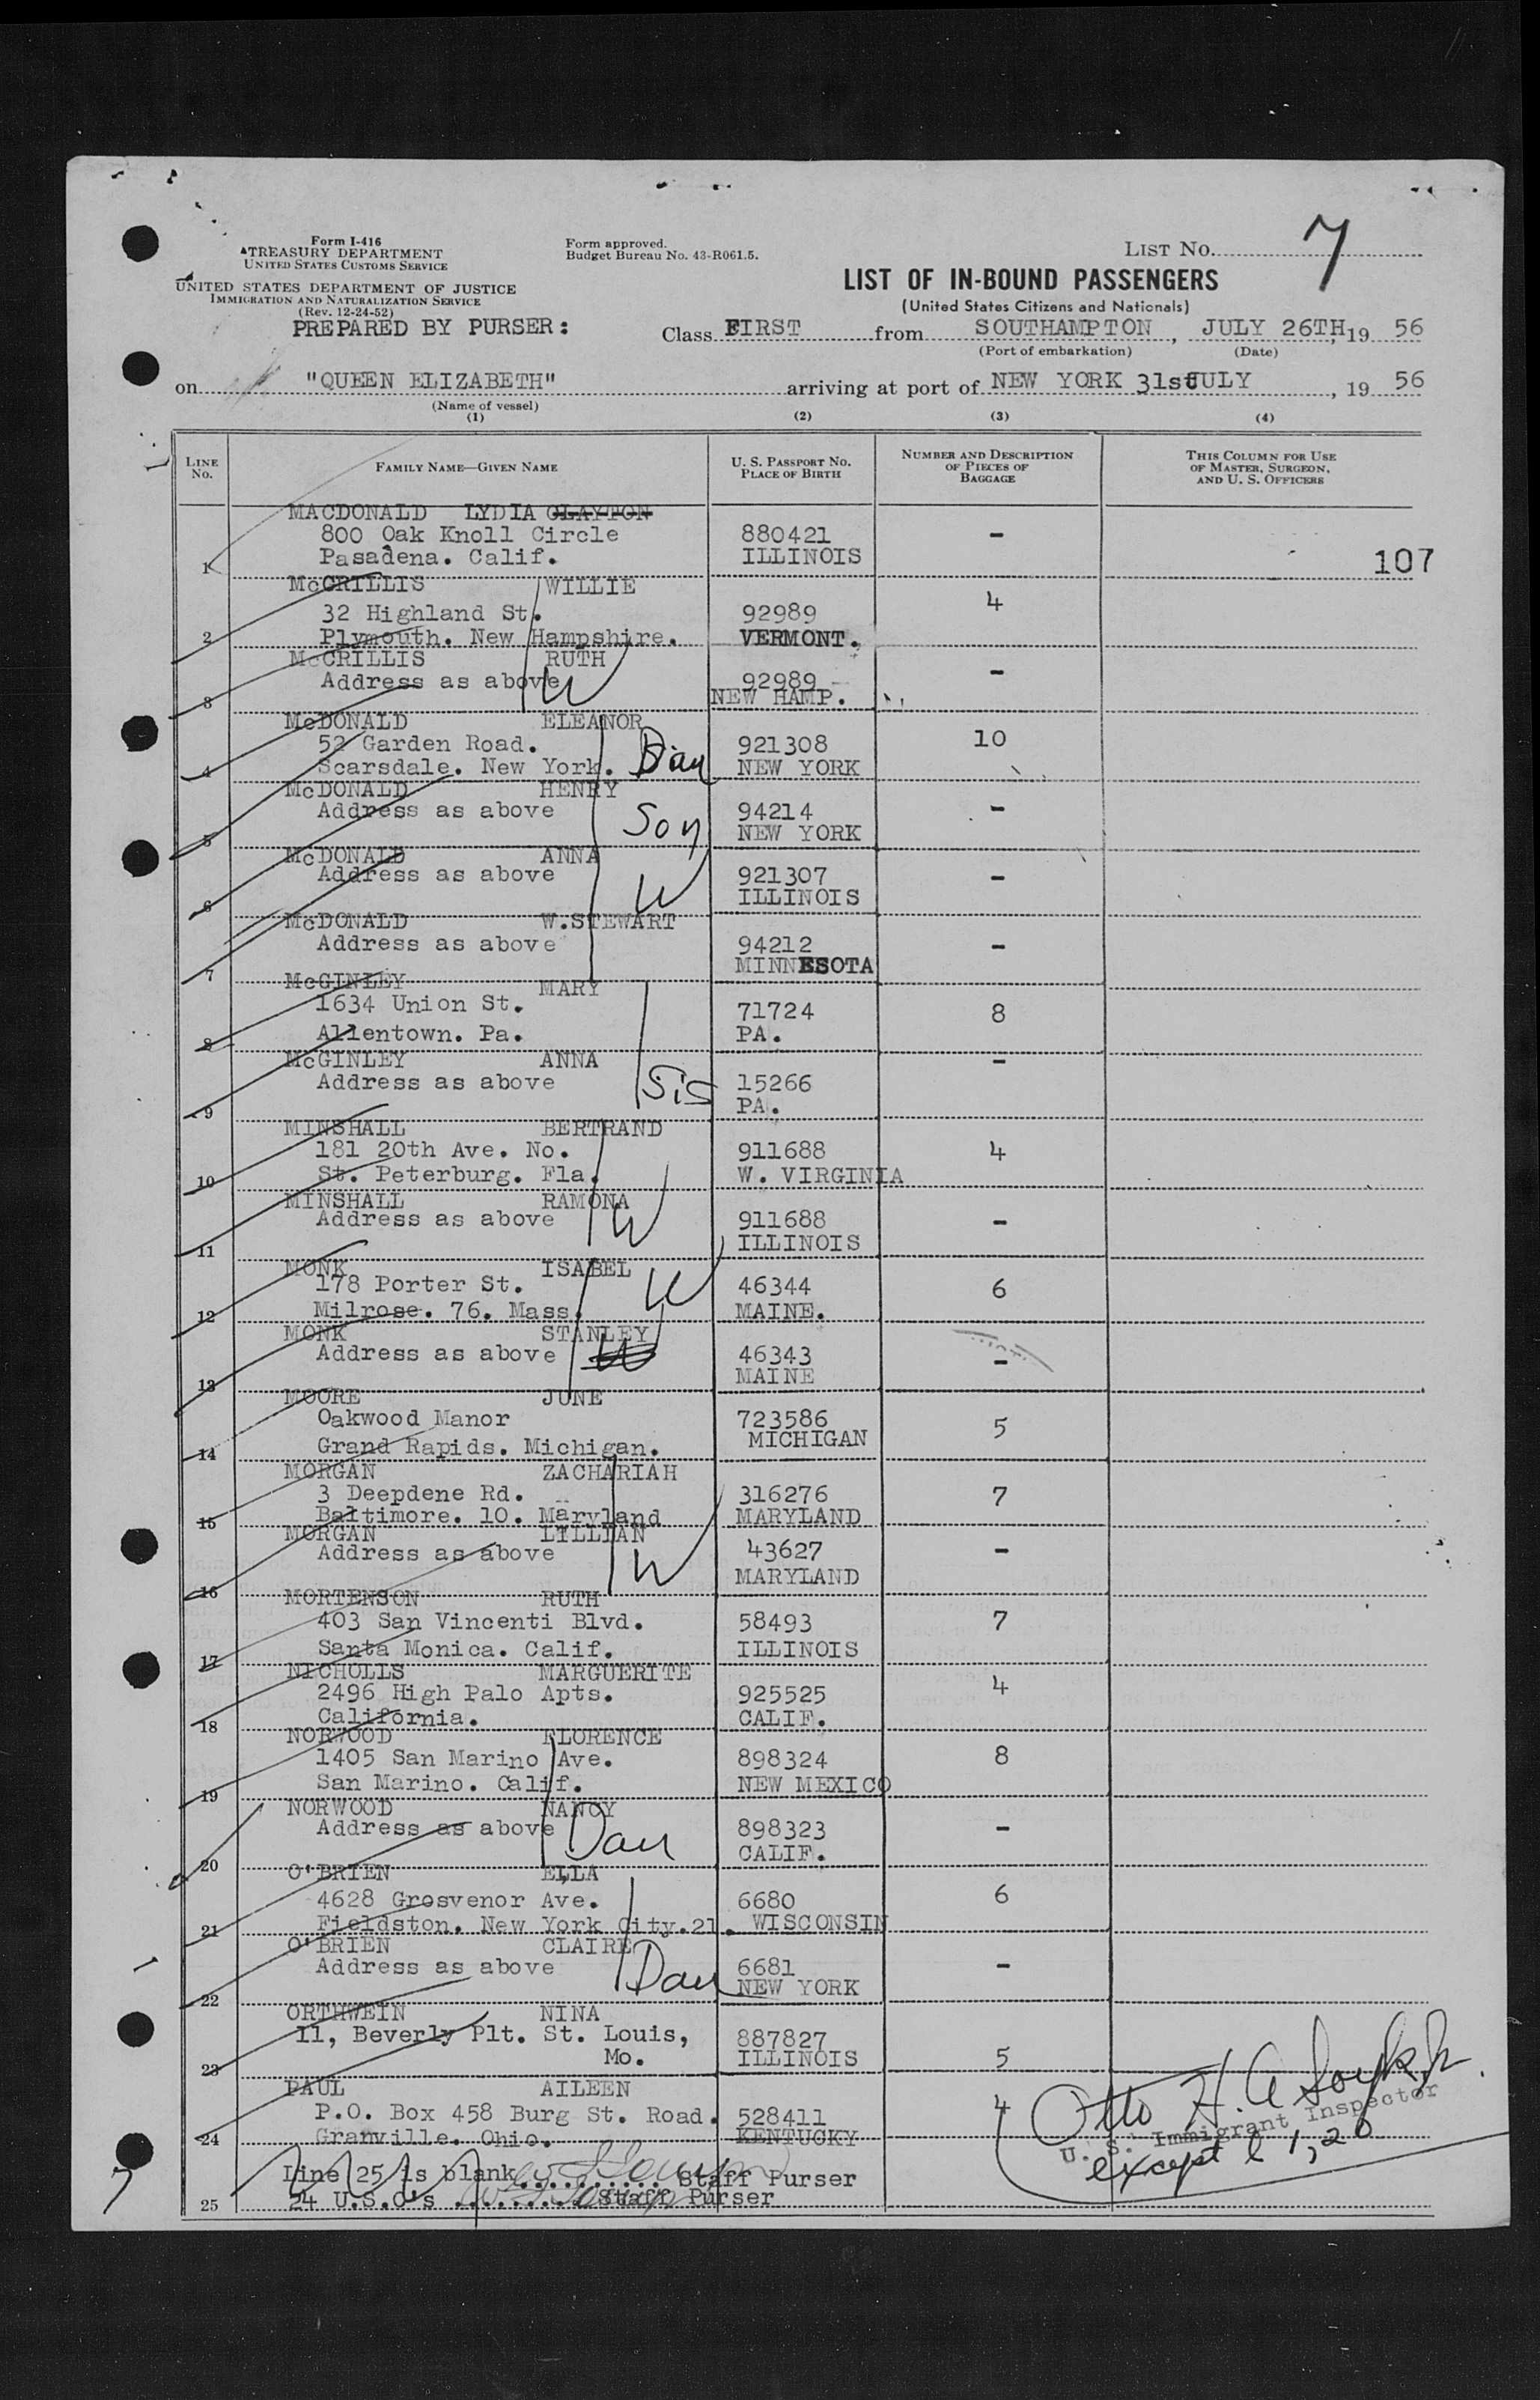 Form I-416
TREASURY DEPARTMENT
UNITED STATES CUSTOMS SERVICE
UNITED STATES DEPARTMENT OF JUSTICE
IMMIGRATION AND NATURALIZATION SERVICE
(Rev. 12-24-52)
PREPARED BY PURSER:
Form approved.
Budget Bureau No. 43-R061.5.
LIST NO. 7
LIST OF IN-BOUND PASSENGERS
(United States Citizens and Nationals)
Class FIRST from SOUTHAMPTON, JULY 26TH, 19 56
(Port of embarkation) (Date)
on "QUEEN ELIZABETH" arriving at port of NEW YORK 31st JULY, 19 56
(Name of vessel)
(1) (2) (3) (4)
LINE No. FAMILY NAME—GIVEN NAME U. S. PASSPORT NO. PLACE OF BIRTH NUMBER AND DESCRIPTION OF PIECES OF BAGGAGE THIS COLUMN FOR USE OF MASTER, SURGEON, AND U. S. OFFICERS
MACDONALD LYDIA CLAYTON
800 Oak Knoll Circle 880421 -
1 Pasadena. Calif. ILLINOIS 107
McCRILLIS WILLIE
32 Highland St. 92989 4
2 Plymouth. New Hampshire. VERMONT.
McCRILLIS RUTH
3 Address as above W 92989 -
NEW HAMP.
McDONALD ELEANOR
52 Garden Road. 921308 10
4 Scarsdale. New York. Dau NEW YORK
McDONALD HENRY
Address as above 94214 -
5 Son NEW YORK
McDONALD ANNA
Address as above 921307 -
6 W ILLINOIS
McDONALD W.STEWART
Address as above 94212 -
7 MINNESOTA
McGINLEY MARY
1634 Union St. 71724 8
8 Allentown. Pa. PA.
McGINLEY ANNA -
Address as above Sis 15266
9 PA.
MINSHALL BERTRAND
181 20th Ave. No. 911688 4
10 St. Peterburg. Fla. W. VIRGINIA
MINSHALL RAMONA
Address as above W 911688 -
11 ILLINOIS
MONK ISABEL
178 Porter St. W 46344 6
12 Milrose. 76. Mass. MAINE.
MONK STANLEY
Address as above W 46343 -
13 MAINE
MOORE JUNE
Oakwood Manor 723586 5
14 Grand Rapids. Michigan. MICHIGAN
MORGAN ZACHARIAH
3 Deepdene Rd. 316276 7
15 Baltimore. 10. Maryland MARYLAND
MORGAN LILLIAN
Address as above W 43627 -
16 MARYLAND
MORTENSON RUTH
403 San Vincenti Blvd. 58493 7
17 Santa Monica. Calif. ILLINOIS
NICHOLLS MARGUERITE
2496 High Palo Apts. 925525 4
18 California. CALIF.
NORWOOD FLORENCE
1405 San Marino Ave. 898324 8
19 San Marino. Calif. NEW MEXICO
NORWOOD NANCY
Address as above Dau 898323 -
20 CALIF.
O'BRIEN ELLA
4628 Grosvenor Ave. 6680 6
21 Fieldston. New York City.21. WISCONSIN
O'BRIEN CLAIRE
Address as above Dau 6681 -
22 NEW YORK
ORTHWEIN NINA
11, Beverly Plt. St. Louis, 887827
23 Mo. ILLINOIS 5
PAUL AILEEN
P.O. Box 458 Burg St. Road. 528411 4
24 Granville. Ohio. KENTUCKY
Otto H. A
U. S. Immigrant Inspector
except l 1, 20
Line 25 is blank .......... Staff Purser
25 24 U.S.C's .......... Staff Purser
7